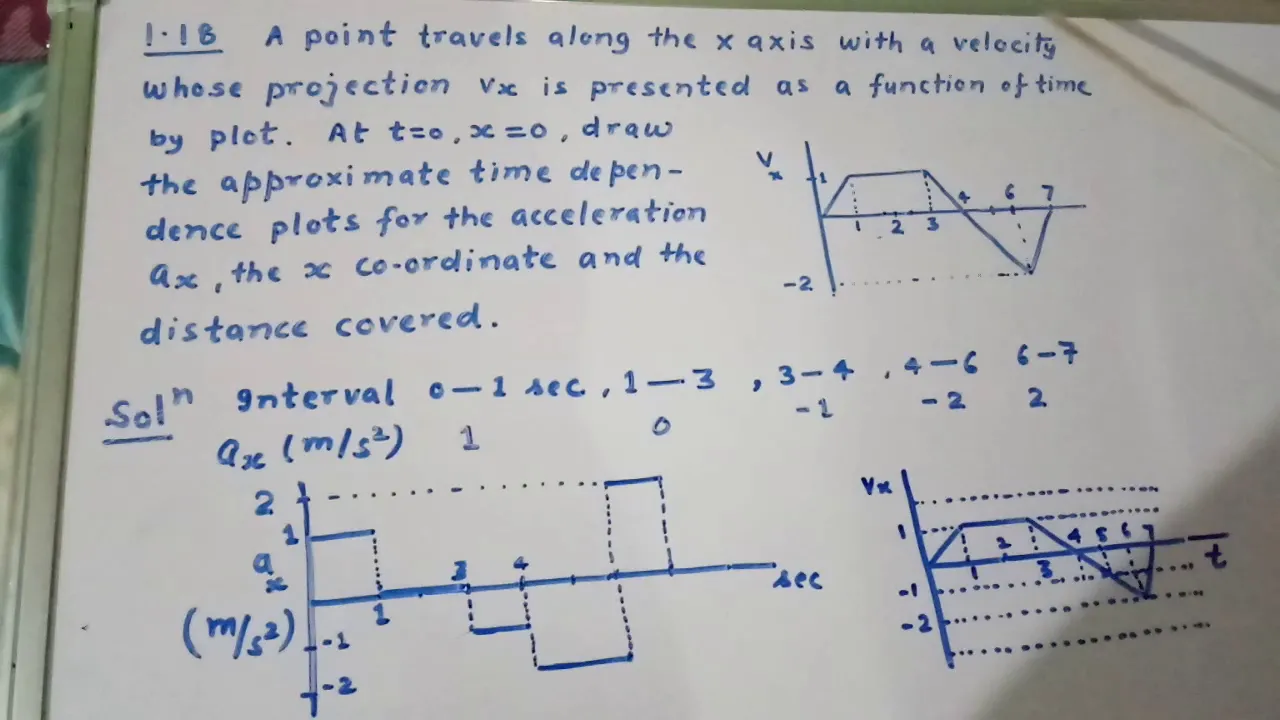 1.18 A point travels along the x axis with a velocity
whose projection Vx is presented as a function of time
by plot. At t=0, x=0, draw
the approximate time depen-
dence plots for the acceleration
ax, the x co-ordinate and the
distance covered.
Vx
1
1 2 3 4 6 7
-2
Solⁿ Interval 0-1 sec, 1-3, 3-4, 4-6 6-7
ax (m/s²) 1 0 -1 -2 2
2
1
ax
(m/s²)
1 3 4
sec
-1
-2
Vx
1
2 3 4 5 6 7
1
t
-1
-2